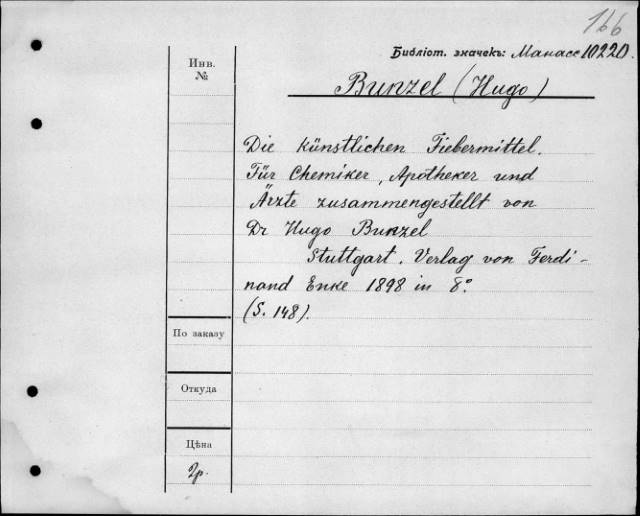 166
Библіот. значекъ: Манасс 10220.
Инв.
№
Bunzel (Hugo)
Die künstlichen Fiebermittel.
Für Chemiker, Apotheker und
Ärzte zusammengestellt von
Dr Hugo Bunzel
Stuttgart. Verlag von Ferdi-
nand Enke 1898 in 8°
(S. 148).
По заказу
Откуда
Цѣна
2р.